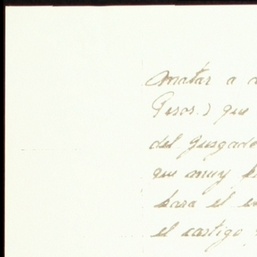 matar a
Pesos.) que
del Juzgado
que muy
hara él
el castigo